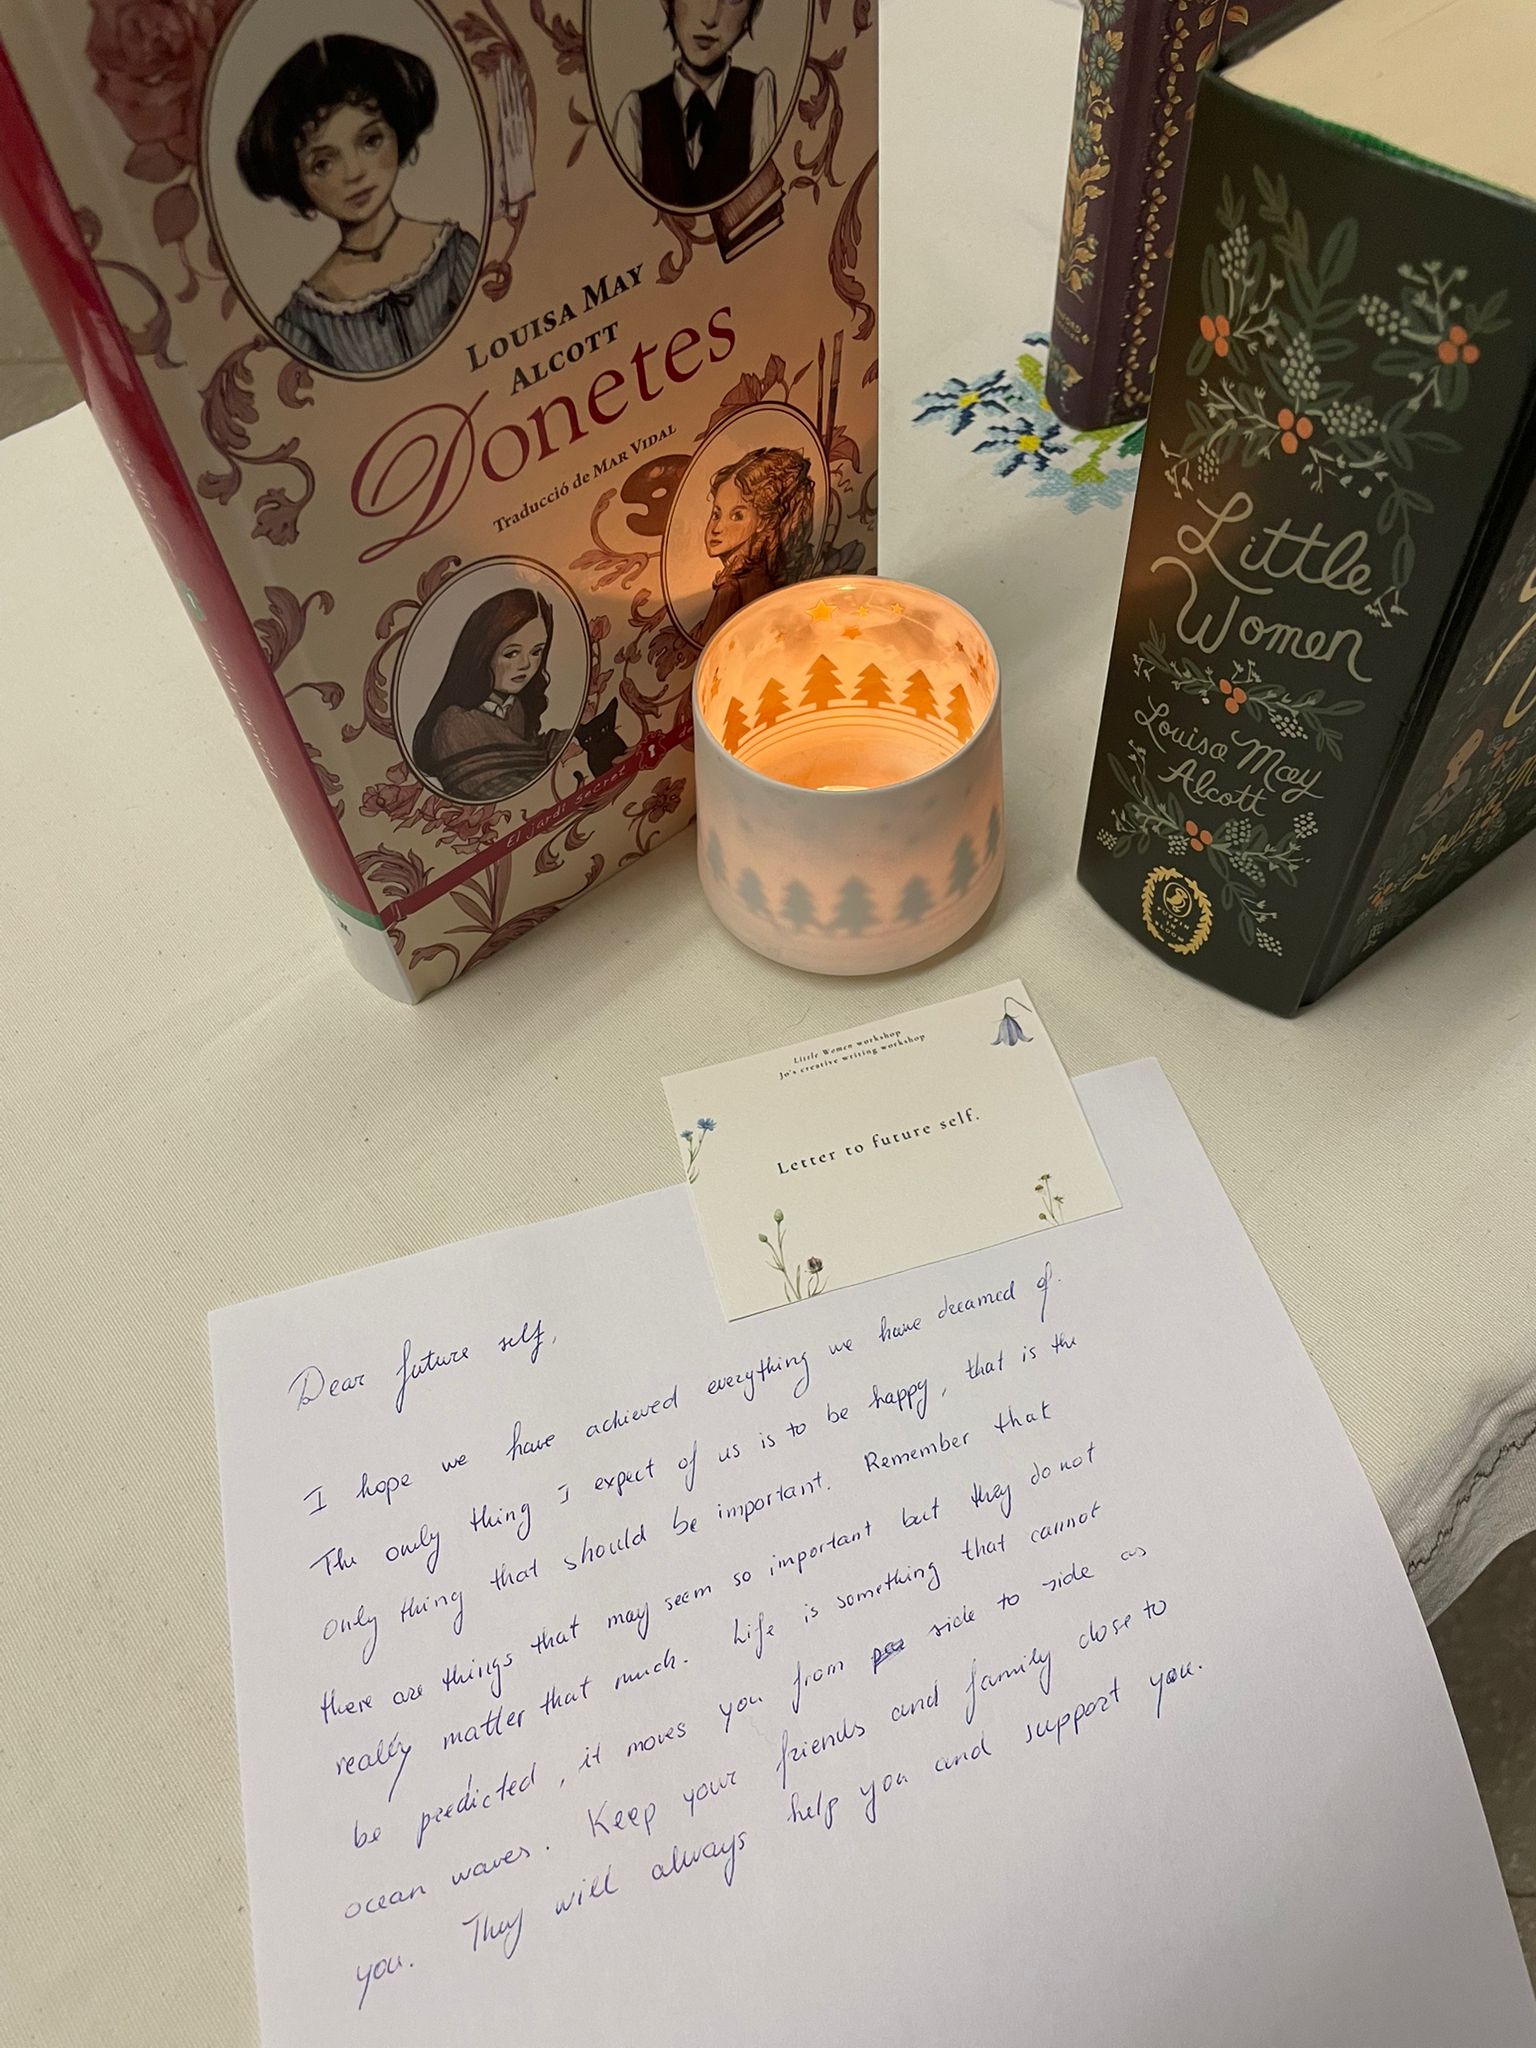 LOUISA MAY
ALCOTT
Donetes
Traducció de MAR VIDAL
El jardí secret
Little
Women
Louisa May
Alcott
PUFFIN
IN
BLOOM
Little Women workshop
Jo's creative writing workshop
Letter to future self.
Dear future self,
I hope we have achieved everything we have dreamed of.
The only thing I expect of us is to be happy, that is the
only thing that should be important. Remember that
there are things that may seem so important but they do not
really matter that much. Life is something that cannot
be predicted, it moves you from side to side as
ocean waves. Keep your friends and family close to
you. They will always help you and support you.